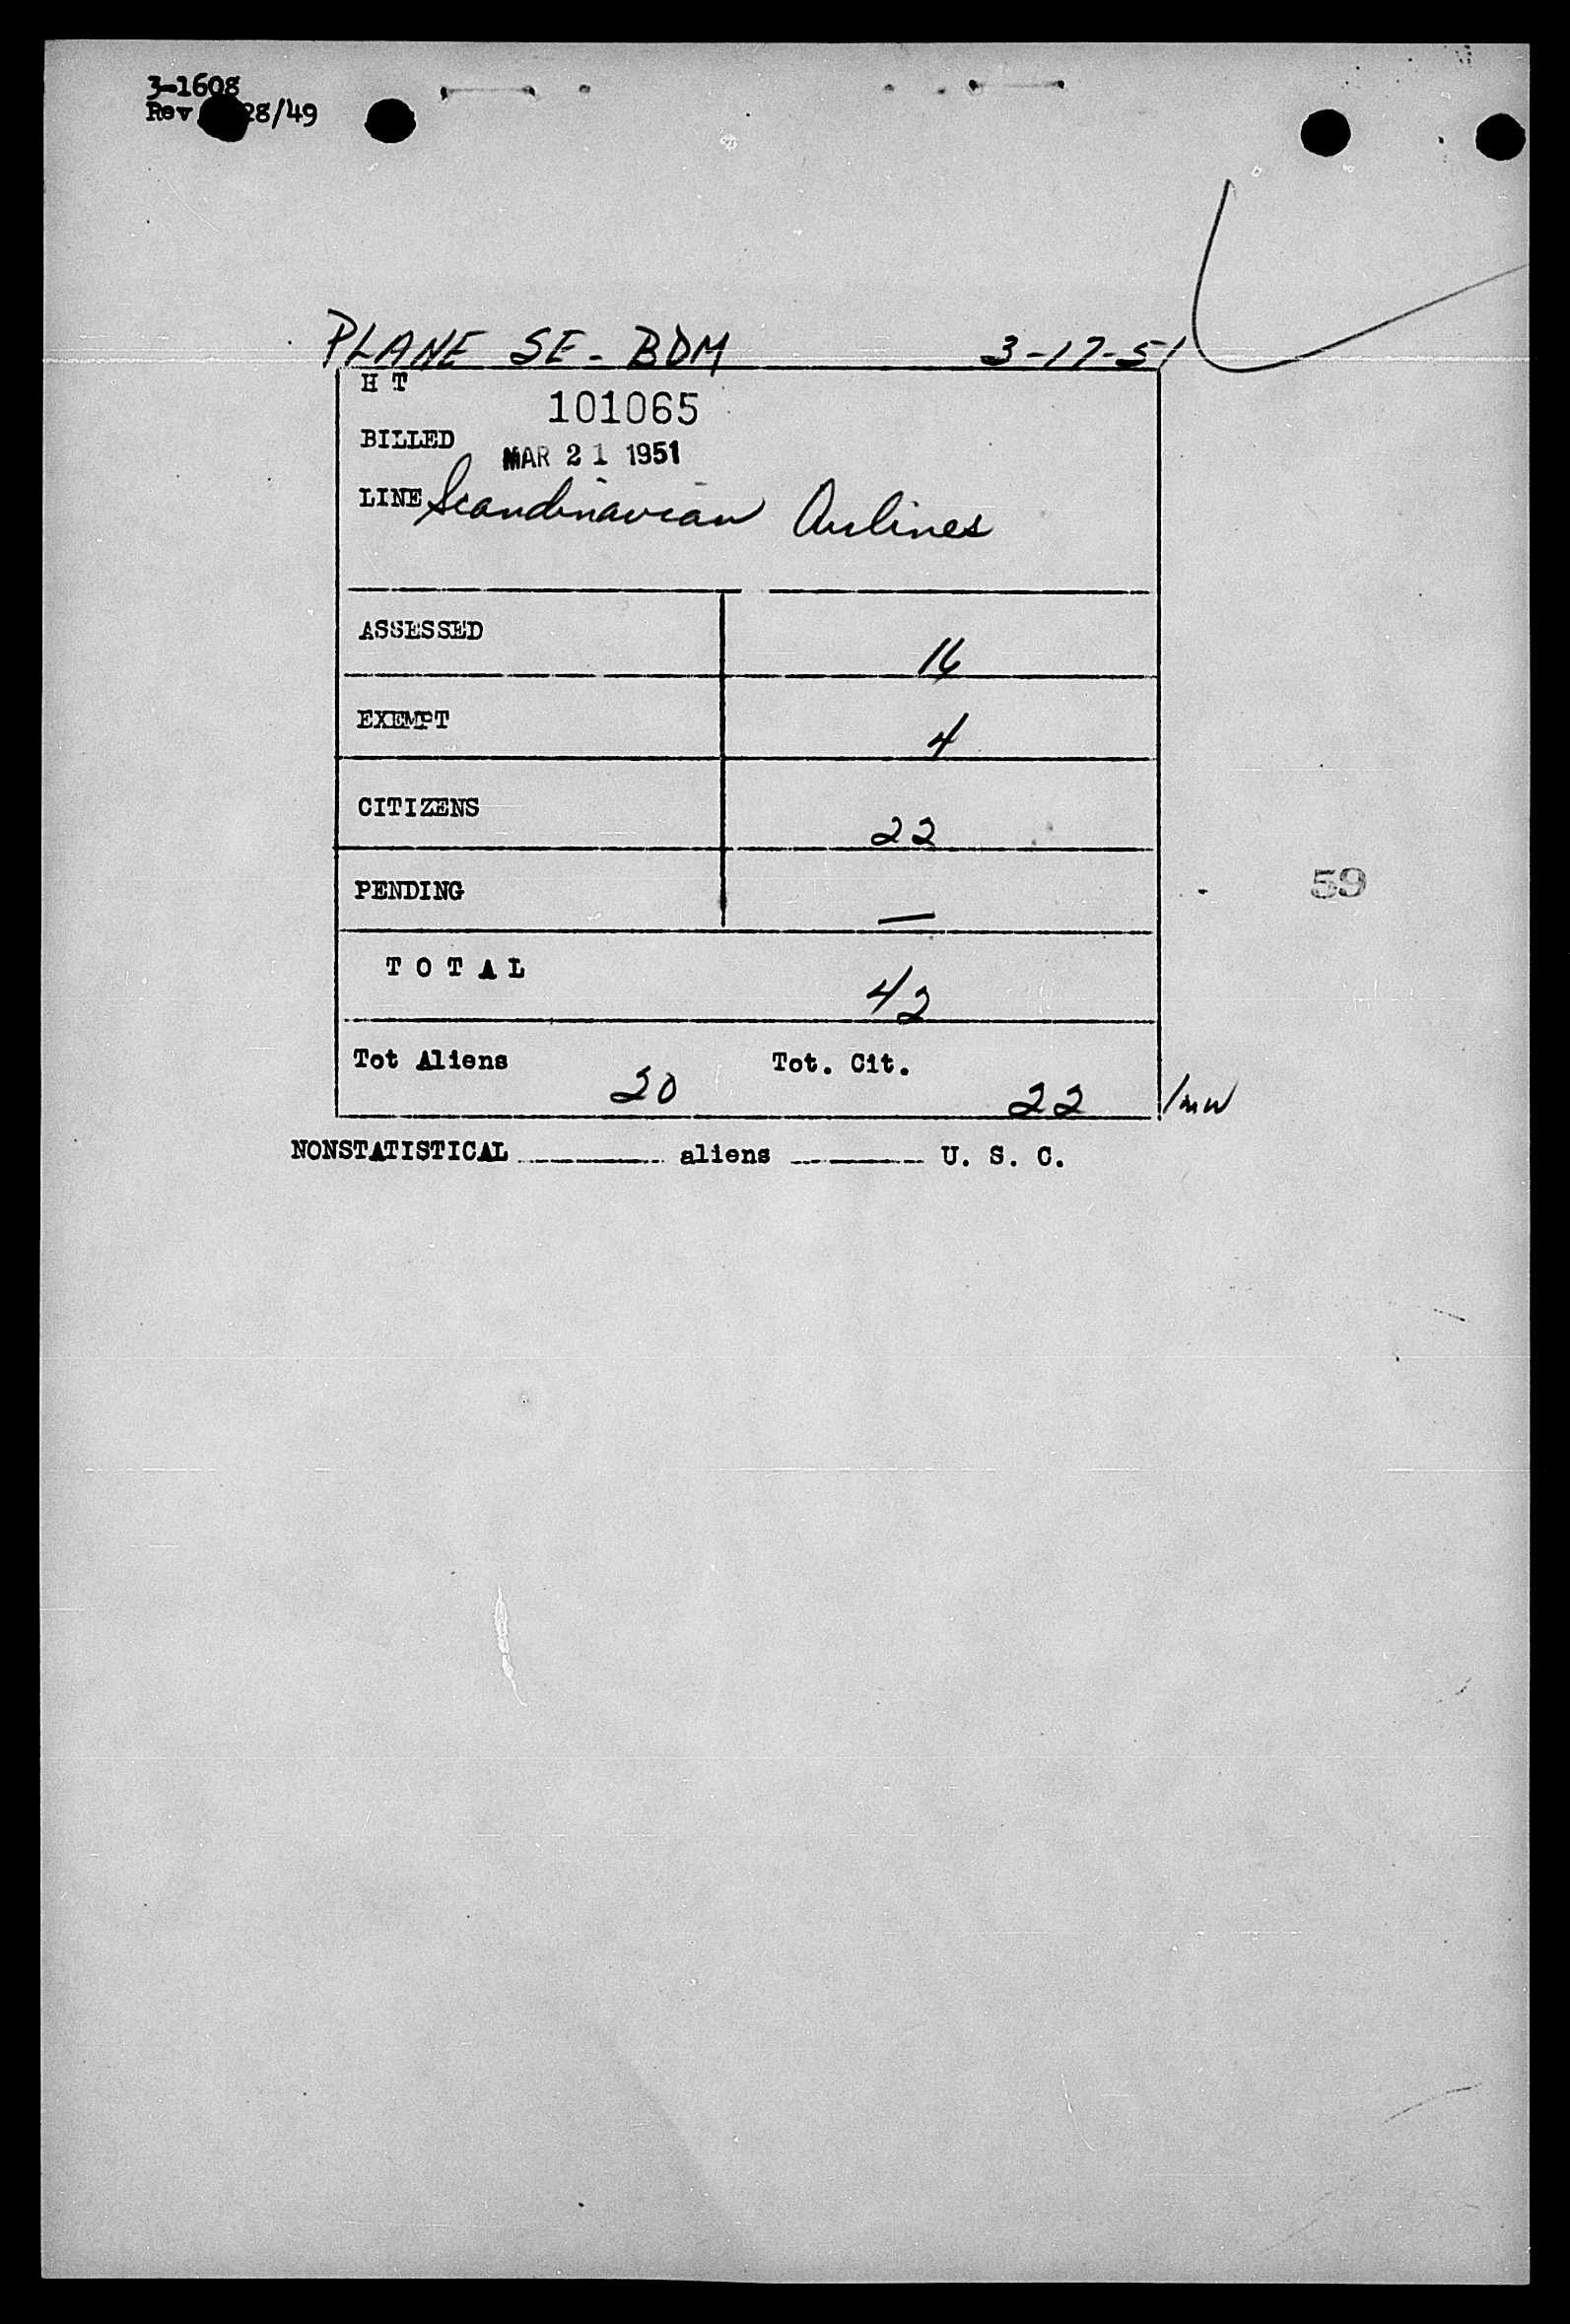 3-1608
Rev 28/49
PLANE SE-BDM 3-17-51
H T
101065
BILLED
MAR 21 1951
LINE Scandinavian Airlines
ASSESSED 16
EXEMPT 4
CITIZENS 22
PENDING —
59
TOTAL 42
Tot Aliens 20 Tot. Cit. 22 /mw
NONSTATISTICAL ______ aliens ______ U. S. C.